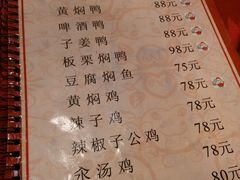 黄焖鸭 88元
啤酒鸭 88元
子姜鸭 88元
板栗焖鸭 98元
豆腐焖鱼 75元
黄焖鸡 78元
辣子鸡 78元
辣椒子公鸡 78元
氽汤鸡 78元
80元